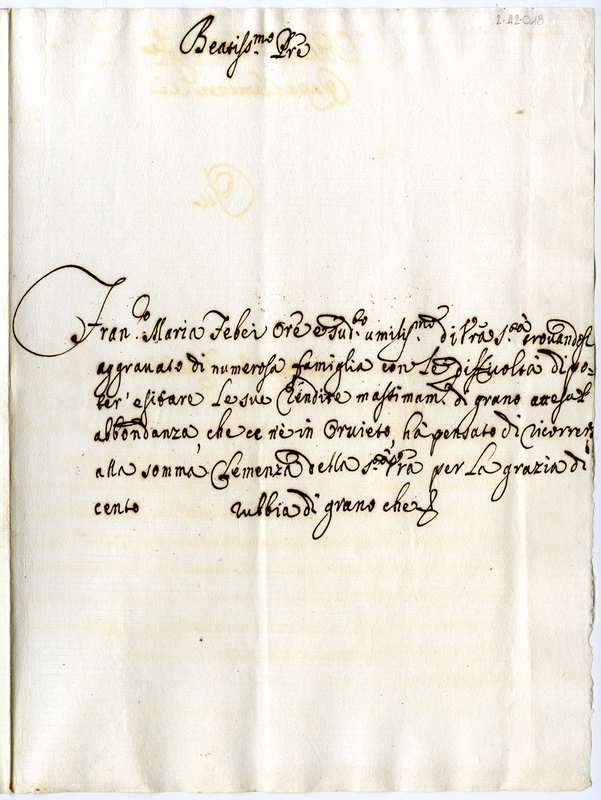 2-A2-018
Beatiss.mo Pre
Fran.co Maria Febei Ore e sud.to umiliss.mo di Vra S.tà trouandosi
aggrauato di numerosa famiglia con la difficoltà di po-
ter' esitare le sue rendite massimam.e di grano attesa l'
abbondanza, che ce n'è in Oruieto, hà pensato di ricorrere
alla somma Clemenza della S.tà Vra per la grazia di
cento rubbia di grano che